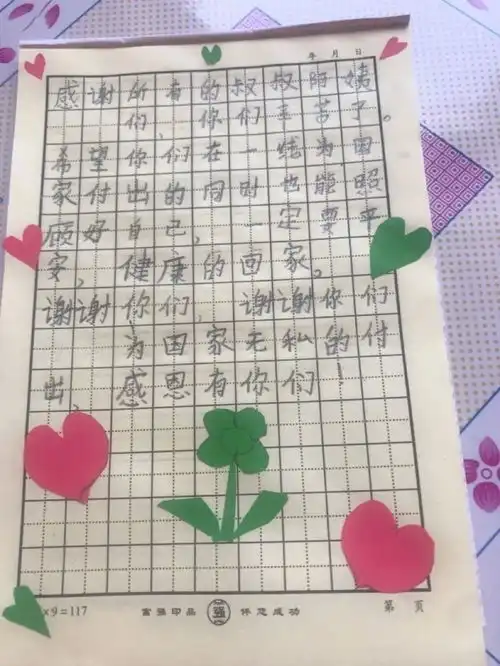 年 月 日
感谢所有的叔叔阿姨
们,你们辛苦了。
希望你们在一线为国
家付出的同时也能照
顾好自己,一定要平
安,健康的回家。
谢谢你们,谢谢你们
为国家无私的付
出,感恩有你们!
×9=117 富强印品 伴您成功 第 页